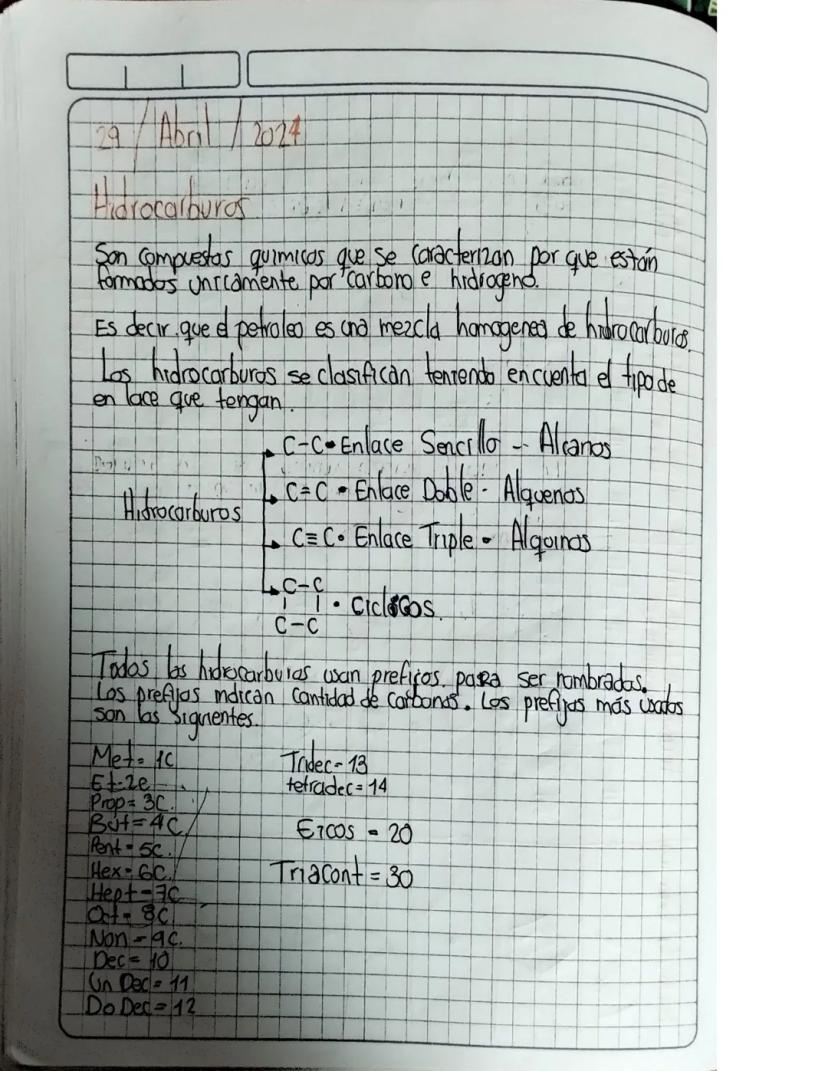 29 / Abril / 2024
Hidrocarburos
Son compuestas quimicos que se caracterizan por que están
formados unicamente por carbono e hidrogeno.
Es decir que el petroleo es una mezcla homogenea de hidrocarburos.
Los hidrocarburos se clasifican teniendo en cuenta el tipo de
en lace que tengan.
C-C • Enlace Sencillo - Alcanos
C=C • Enlace Doble - Alquenos
Hidrocarburos
C≡C • Enlace Triple - Alquinos
C-C
| | • Ciclicos.
C-C
Todos los hidrocarburos usan prefijos para ser nombrados.
Los prefijos indican cantidad de carbonos. Los prefijos más usados
son los siguientes.
Met = 1C
Et-2e
Prop = 3C.
But = 4C
Pent = 5C.
Hex = 6C.
Hept = 7C
Oct = 8C
Non = 9C.
Dec = 10
Un Dec = 11
Do Dec = 12
Tridec = 13
tetradec = 14
Eicos = 20
Triacont = 30